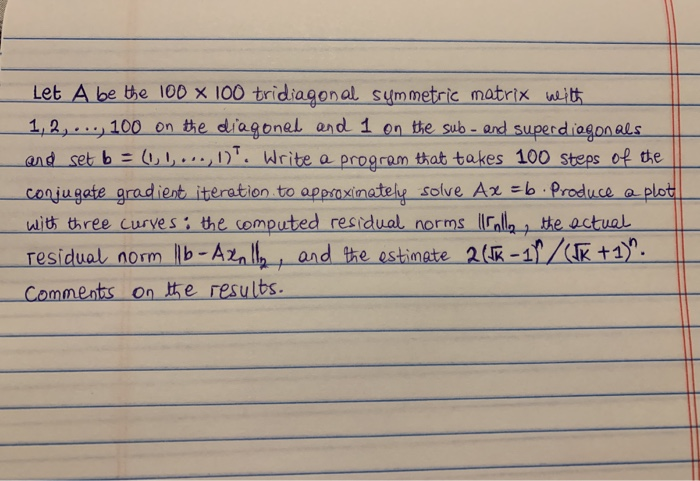 Let A be the 100 × 100 tridiagonal symmetric matrix with
1, 2, ..., 100 on the diagonal and 1 on the sub-and superdiagonals
and set b = (1, 1, ..., 1)ᵀ. Write a program that takes 100 steps of the
conjugate gradient iteration to approximately solve Ax = b. Produce a plot
with three curves: the computed residual norms ||rₙ||₂, the actual
residual norm ||b-Axₙ||₂, and the estimate 2(√K-1)ⁿ/(√K+1)ⁿ.
Comments on the results.